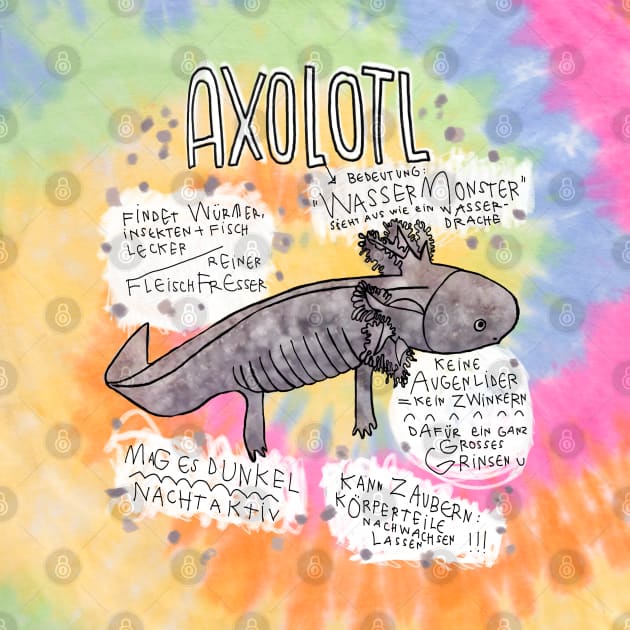 AXOLOTL
BEDEUTUNG:
"WASSERMONSTER"
SIEHT AUS WIE EIN WASSER-
DRACHE
FINDET WÜRMER,
INSEKTEN + FISCH
LECKER
REINER
FLEISCHFRESSER
KEINE
AUGENLIDER
= KEIN ZWINKERN
DAFÜR EIN GANZ
GROSSES
GRINSEN U
MAG ES DUNKEL
NACHTAKTIV
KANN ZAUBERN:
KÖRPERTEILE
NACHWACHSEN
LASSEN !!!